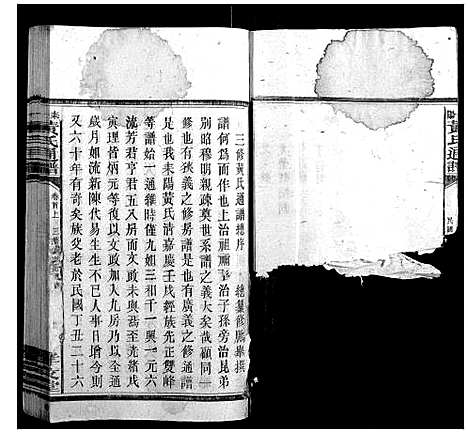 黃氏通譜
三修黃氏通譜總序
總纂修
撰
譜何為而作也上治祖禰下治子孫旁治昆弟
別昭穆明親疎莫世系譜之義大矣哉顧同一
修也有狹義之修房譜是也有廣義之修通譜
是也我耒陽黃氏清嘉慶壬戌經族先正雙峰
等譜始一通維時僅九姐三和千一興一元六
流芳君亨君五又八房而文政未與焉至光緒戊
寅理皆炳元等復以文政加入九房乃以全通
歲月如流新陳代易生生不已人事日增今則
又六十年有奇矣族叟老於民國丁丑二十六
耒
黃氏通譜
卷首上
三修